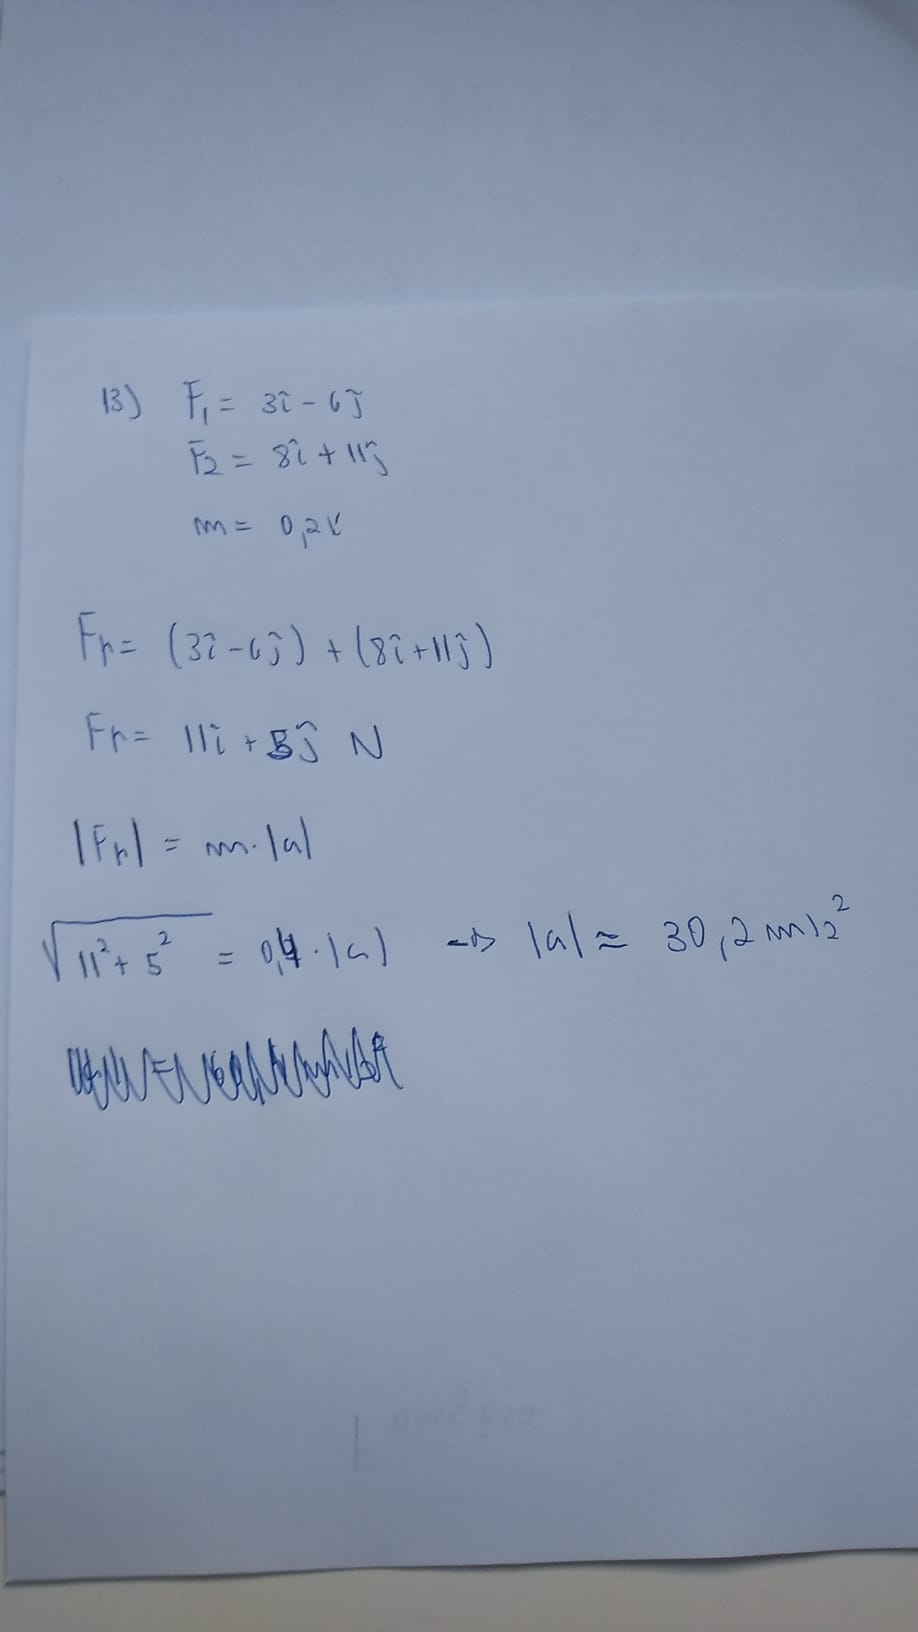 13) F₁ = 3î - 6ĵ
F₂ = 8î + 11ĵ
m = 0,2k
Fr = (3î - 6ĵ) + (8î + 11ĵ)
Fr = 11î + 5ĵ N
|Fr| = m·|a|
√(11² + 5²) = 0,4·|a| ⇒ |a| ≈ 30,2 m/s²